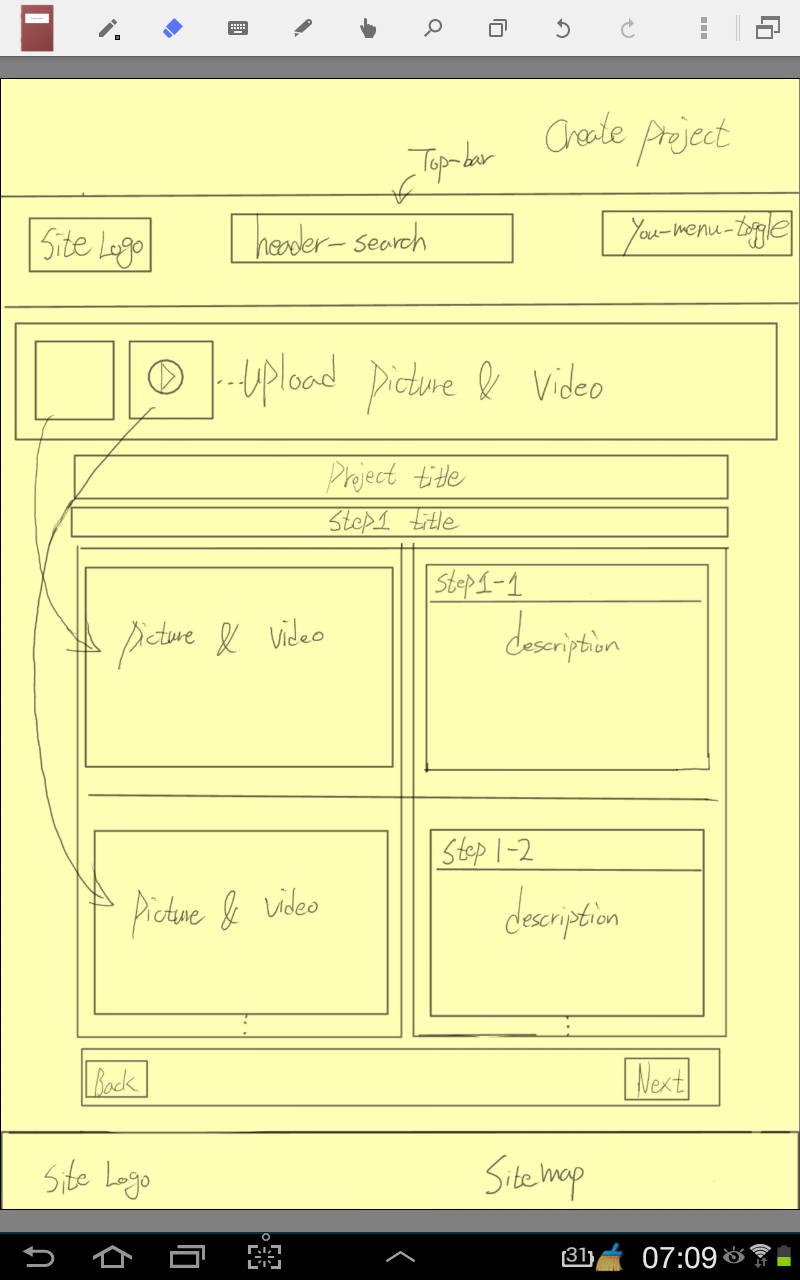 Create project
Top-bar
Site Logo
header-search
You-menu-toggle
...Upload picture & video
Project title
Step1 title
picture & video
Step1-1
description
picture & video
Step 1-2
description
Back
Next
Site Logo
Sitemap
31
07:09